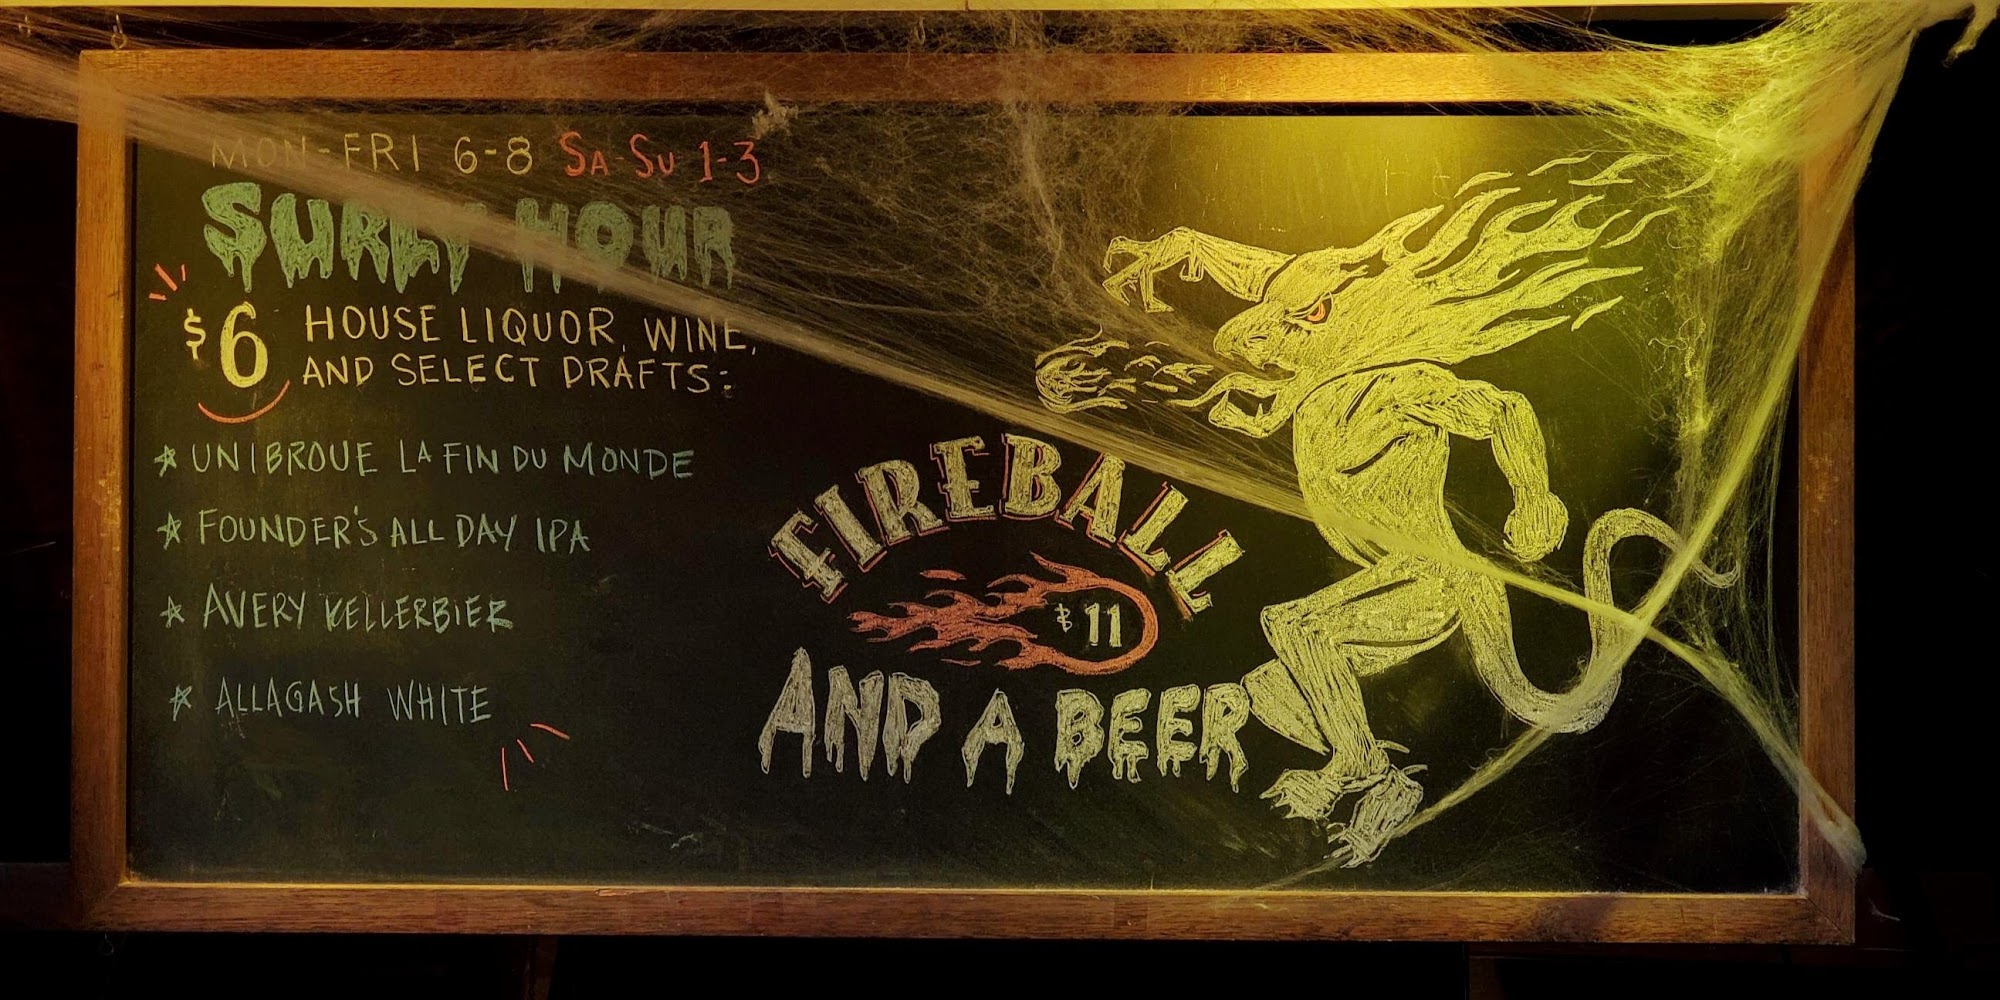 MON-FRI 6-8 SA-SU 1-3
SURLY HOUR
$6 HOUSE LIQUOR, WINE,
AND SELECT DRAFTS:
UNIBROUE LA FIN DU MONDE
FOUNDER'S ALL DAY IPA
AVERY KELLERBIER
ALLAGASH WHITE
FIREBALL
$11
AND A BEER